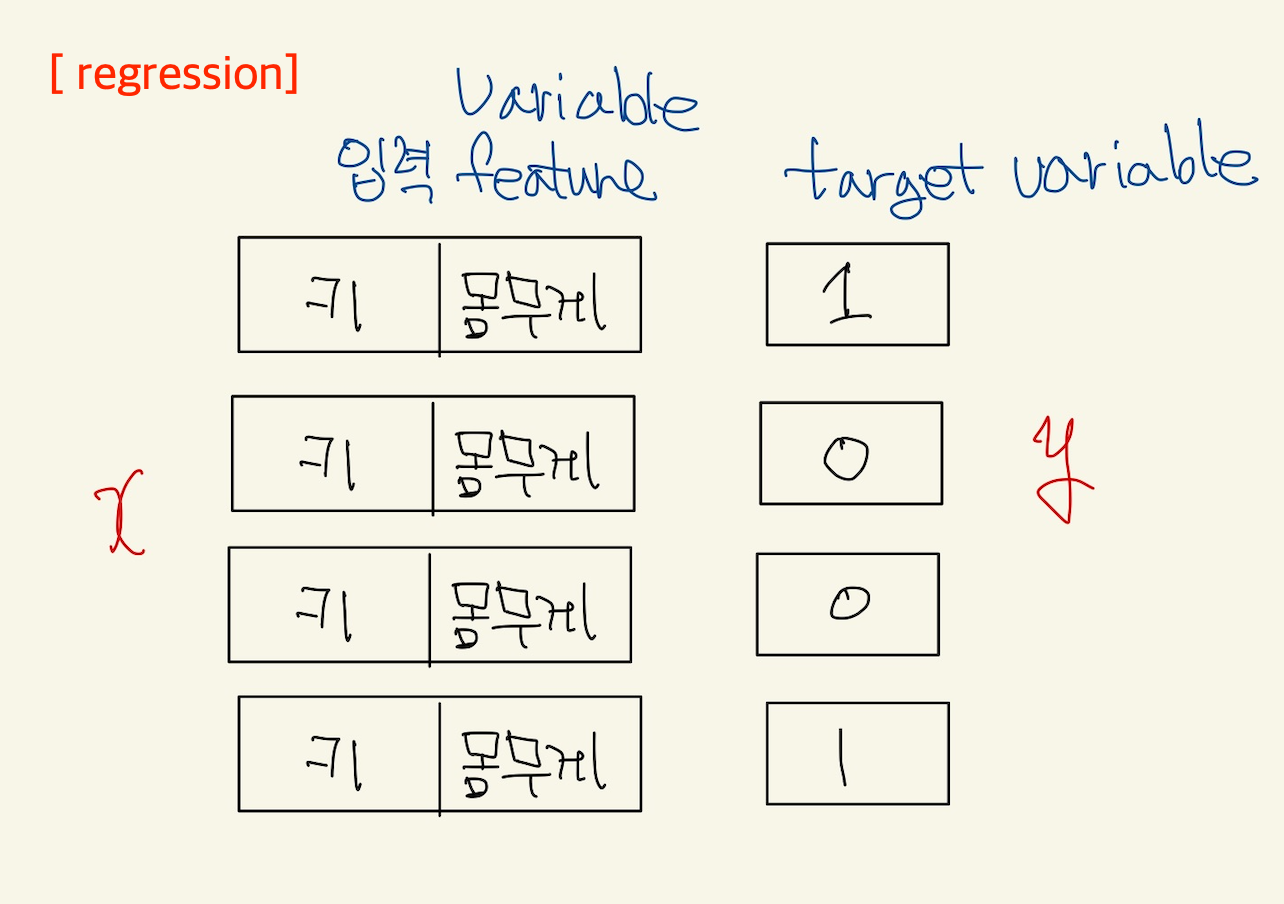 [ regression]
Variable
입력 feature
target variable
키 몸무게 1
키 몸무게 0
x
y
키 몸무게 0
키 몸무게 1